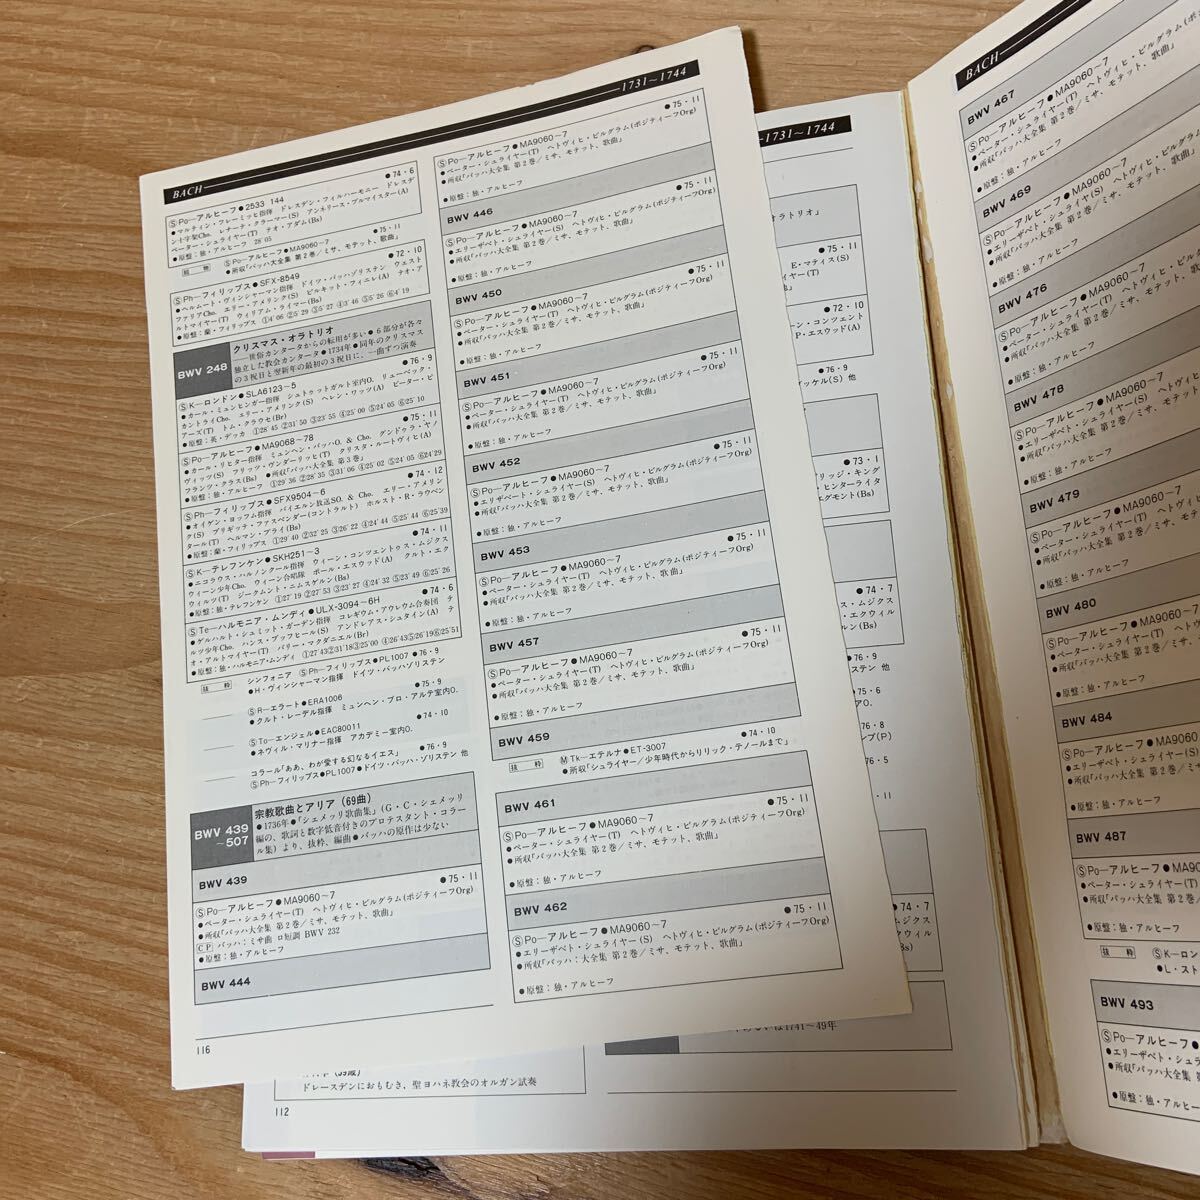 BACH
1731〜1744
ⓈPo―アルヒーフ●2533 144 ●74・6
●マルティン・フレーミッヒ指揮 ドレスデン・フィルハーモニー ドレスデ
ン十字架Cho. レナーテ・クラーマー(S) アンネリース・ブルマイスター(A)
ペーター・シュライヤー(T) テオ・アダム(Bs)
●原盤：独・アルヒーフ 28′05
ⓈPo―アルヒーフ●MA9060〜7 ●75・11
●所収「バッハ大全集 第2巻／ミサ、モテット、歌曲」
ⓈPh―フィリップス●SFX-8549 ●72・10
●ヘルムート・ヴィンシャーマン指揮 ドイツ・バッハゾリステン ウェスト
ファリアCho. エリー・アメリンク(S) ビルキット・フィニレ(A) テオ・ア
ルトマイヤー(T) ウィリアム・ライマー(Bs)
●原盤：蘭・フィリップス ①4′06 ②5′29 ③5′27 ④3′46 ⑤5′26 ⑥4′19
BWV 248
クリスマス・オラトリオ
―世俗カンタータからの転用が多い●6部分が各々
独立した教会カンタータ●1734年●同年のクリスマス
の3祝日と翌新年の最初の3祝日に、一曲ずつ演奏
ⓈK―ロンドン●SLA6123〜5 ●76・9
●カール・ミュンヒンガー指揮 シュトゥットガルト室内O. リューベック・
カントライCho. エリー・アメリンク(S) ヘレン・ワッツ(A) ピーター・ピ
アーズ(T) トム・クラウセ(Br)
●原盤：英・デッカ ①28′45 ②31′50 ③23′55 ④25′00 ⑤24′05 ⑥25′10
ⓈPo―アルヒーフ●MA9068〜78 ●75・11
●カール・リヒター指揮 ミュンヘン・バッハO. & Cho. グンドゥラ・ヤノ
ヴィッツ(S) フリッツ・ヴンダーリッヒ(T) クリスタ・ルートヴィヒ(A)
フランツ・クラス(Bs) ●所収「バッハ大全集 第3巻」
●原盤：独・アルヒーフ ①29′36 ②28′35 ③31′06 ④25′02 ⑤24′05 ⑥24′29
ⓈPh―フィリップス●SFX9504〜6 ●74・12
●オイゲン・ヨッフム指揮 バイエルン放送SO. & Cho. エリー・アメリン
ク(S) ブリギッテ・ファスベンダー(コントラルト) ホルスト・R・ラウベン
タール(T) ヘルマン・プライ(Bs)
●原盤：蘭・フィリップス ①29′40 ②32′25 ③26′22 ④24′44 ⑤25′44 ⑥25′39
ⓈK―テレフンケン●SKH251〜3 ●74・11
●ニコラウス・ハルノンクール指揮 ウィーン・コンツェントゥス・ムジクス
ウィーン少年Cho. ウィーン合唱隊 ポール・エスウッド(A) クルト・エク
ウィルツ(T) ジークムント・ニムスゲルン(Bs)
●原盤：独・テレフンケン ①27′19 ②27′53 ③23′27 ④24′32 ⑤23′49 ⑥25′26
ⓈTe―ハルモニア・ムンディ●ULX-3094〜6H ●74・6
●ゲルハルト・シュミット・ガーデン指揮 コレギウム・アウレウム合奏団 テ
ルツ少年Cho. ハンス・ブッフヒール(S) アンドレアス・シュタイン(A) テ
オ・アルトマイヤー(T) バリー・マクダニエル(Br)
●原盤：独・ハルモニア・ムンディ ①27′43②31′18③25′00 ④26′43⑤26′19⑥25′51
抜粋
シンフォニア ⓈPh―フィリップス●PL1007 ●76・9
●H・ヴィンシャーマン指揮 ドイツ・バッハゾリステン
ⓈR―エラート●ERA1006 ●75・9
●クルト・レーデル指揮 ミュンヘン・プロ・アルテ室内O.
ⓈTo―エンジェル●EAC80011 ●74・10
●ネヴィル・マリナー指揮 アカデミー室内O.
コラール「ああ、わが愛する幻なるイエス」 ●76・9
ⓈPh―フィリップス●PL1007●ドイツ・バッハ・ゾリステン 他
BWV 439
〜507
宗教歌曲とアリア (69曲)
●1736年●「シェメッリ歌曲集」(G・C・シェメッリ
編の、歌詞と数字低音付きのプロテスタント・コラー
ル集）より、抜粋、編曲●バッハの原作は少ない
BWV 439
ⓈPo―アルヒーフ●MA9060〜7 ●75・11
●ペーター・シュライヤー(T) ヘトヴィヒ・ビルグラム(ポジティーフOrg)
●所収「バッハ大全集 第2巻／ミサ、モテット、歌曲」
CP バッハ：ミサ曲 ロ短調 BWV 232
●原盤：独・アルヒーフ
BWV 444
116
ⓈPo―アルヒーフ●MA9060〜7 ●75・11
●ペーター・シュライヤー(T) ヘトヴィヒ・ビルグラム(ポジティーフOrg)
●所収「バッハ大全集 第2巻／ミサ、モテット、歌曲」
●原盤：独・アルヒーフ
BWV 446
ⓈPo―アルヒーフ●MA9060〜7 ●75・11
●エリーザベト・シュライヤー(S) ヘトヴィヒ・ビルグラム(ポジティーフOrg)
●所収「バッハ大全集 第2巻／ミサ、モテット、歌曲」
●原盤：独・アルヒーフ
BWV 450
ⓈPo―アルヒーフ●MA9060〜7 ●75・11
●ペーター・シュライヤー(T) ヘトヴィヒ・ビルグラム(ポジティーフOrg)
●所収「バッハ大全集 第2巻／ミサ、モテット、歌曲」
●原盤：独・アルヒーフ
BWV 451
ⓈPo―アルヒーフ●MA9060〜7 ●75・11
●ペーター・シュライヤー(T) ヘトヴィヒ・ビルグラム(ポジティーフOrg)
●所収「バッハ大全集 第2巻／ミサ、モテット、歌曲」
●原盤：独・アルヒーフ
BWV 452
ⓈPo―アルヒーフ●MA9060〜7 ●75・11
●エリザベート・シュライヤー(S) ヘトヴィヒ・ビルグラム(ポジティーフOrg)
●所収「バッハ大全集 第2巻／ミサ、モテット、歌曲」
●原盤：独・アルヒーフ
BWV 453
ⓈPo―アルヒーフ●MA9060〜7 ●75・11
●ペーター・シュライヤー(T) ヘトヴィヒ・ビルグラム(ポジティーフOrg)
●所収「バッハ大全集 第2巻／ミサ、モテット、歌曲」
●原盤：独・アルヒーフ
BWV 457
ⓈPo―アルヒーフ●MA9060〜7 ●75・11
●ペーター・シュライヤー(T) ヘトヴィヒ・ビルグラム(ポジティーフOrg)
●所収「バッハ大全集 第2巻／ミサ、モテット、歌曲」
●原盤：独・アルヒーフ
BWV 459
抜粋
ⓂTk―エテルナ●ET-3007 ●74・10
●所収「シュライヤー／少年時代からリリック・テノールまで」
BWV 461
ⓈPo―アルヒーフ●MA9060〜7 ●75・11
●ペーター・シュライヤー(T) ヘトヴィヒ・ビルグラム(ポジティーフOrg)
●所収「バッハ大全集 第2巻／ミサ、モテット、歌曲」
●原盤：独・アルヒーフ
BWV 462
ⓈPo―アルヒーフ●MA9060〜7 ●75・11
●エリーザベト・シュライヤー(S) ヘトヴィヒ・ビルグラム(ポジティーフOrg)
●所収「バッハ：大全集 第2巻／ミサ、モテット、歌曲」
●原盤：独・アルヒーフ
1731〜1744
オラトリオ」
●75・11
E・マティス(S)
イヤー(T)
他」
●72・10
ーン・コンツェント
P・エスウッド(A)
●76・9
ッケル(S) 他
●73・1
ブリッジ・キング
・ヒンターライタ
エグモント(Bs)
●74・7
ス・ムジクス
・エクウィル
ルン(Bs)
●76・9
ステン 他
●75・6
●76・8
ンプ(P.)
●76・5
●74・7
ムジクス
クウィル
(Bs)
1741〜49年
ドレースデンにおもむき、聖ヨハネ教会のオルガン試奏
112
BACH
BWV 467
ⓈPo―アルヒーフ●MA9060〜7
●ペーター・シュライヤー(T) ヘトヴィヒ・ビルグラム(ポ
●所収「バッハ大全集 第2巻／ミサ、モテット、歌曲」
●原盤：独・アルヒーフ
BWV 469
ⓈPo―アルヒーフ●MA9060〜7
●エリーザベト・シュライヤ(S) ヘトヴィヒ・ビルグラム
●所収「バッハ大全集 第2巻／ミサ、モテット、歌曲」
●原盤：独・アルヒーフ
BWV 476
ⓈPo―アルヒーフ●MA9060〜7
●ペーター・シュライヤー(T) ヘトヴィヒ・ビルグラム
●所収「バッハ大全集 第2巻／ミサ、モテット、歌
●原盤：独・アルヒーフ
BWV 478
ⓈPo―アルヒーフ●MA9060〜7
●エリーザベト・シュライヤー(S) ヘトヴィヒ・
●所収「バッハ大全集 第2巻／ミサ、モテット
●原盤：独・アルヒーフ
BWV 479
ⓈPo―アルヒーフ●MA9060〜7
●ペーター・シュライヤー(T) ヘトヴィヒ
●所収「バッハ大全集 第2巻／ミサ、モテ
●原盤：独・アルヒーフ
BWV 480
ⓈPo―アルヒーフ●MA9060〜7
●ペーター・シュライヤー(T) ヘト
●所収「バッハ大全集 第2巻／ミサ
●原盤：独・アルヒーフ
BWV 484
ⓈPo―アルヒーフ●MA9060〜
●エリーザベト・シュライヤー(S)
●所収「バッハ大全集 第2巻／
●原盤：独・アルヒーフ
BWV 487
ⓈPo―アルヒーフ●MA90
●ペーター・シュライヤー(
●所収「バッハ大全集 第
●原盤：独・アルヒーフ
抜粋
ⓈK―ロン
●L・スト
BWV 493
ⓈPo―アルヒーフ●
●エリーザベト・シュ
●所収「バッハ大全集
●原盤：独・アルヒ